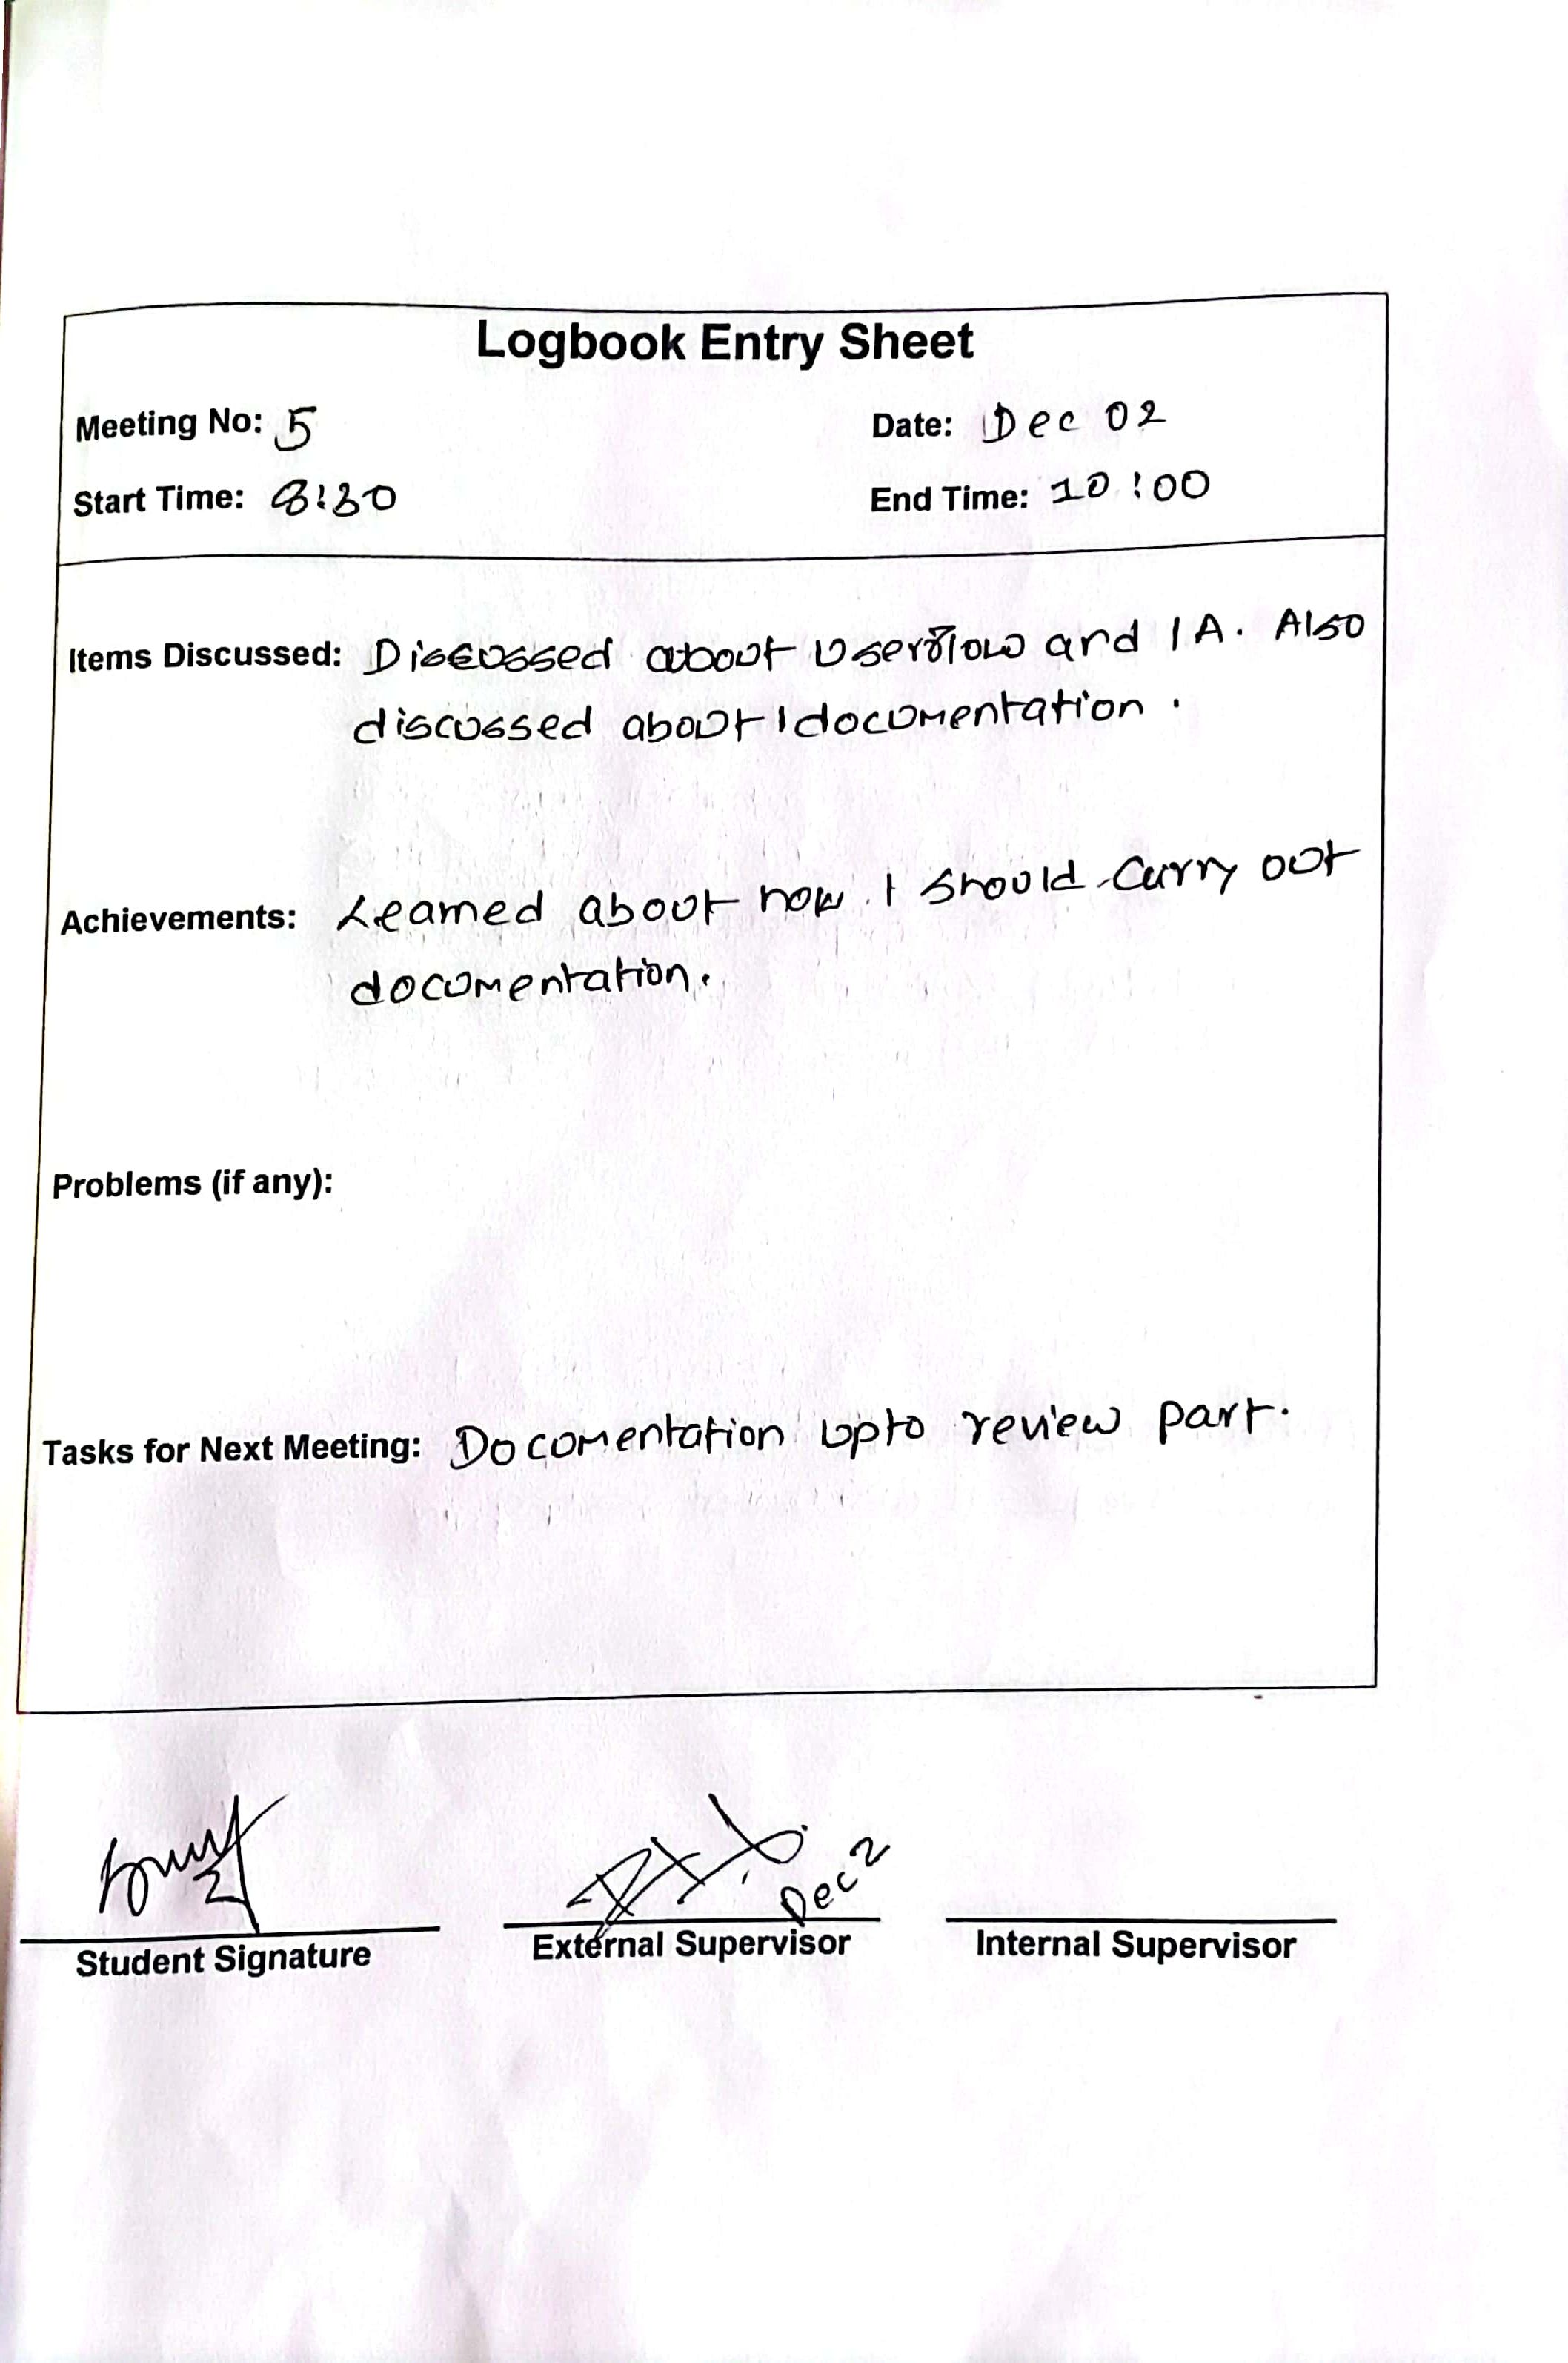 Logbook Entry Sheet
Meeting No: 5 Date: Dec 02
Start Time: 8:30 End Time: 10:00
Items Discussed: Discussed about Userflow and IA. Also
discussed about documentation.
Achievements: Learned about how I should carry out
documentation.
Problems (if any):
Tasks for Next Meeting: Documentation upto review part.
Dec 2
Student Signature External Supervisor Internal Supervisor